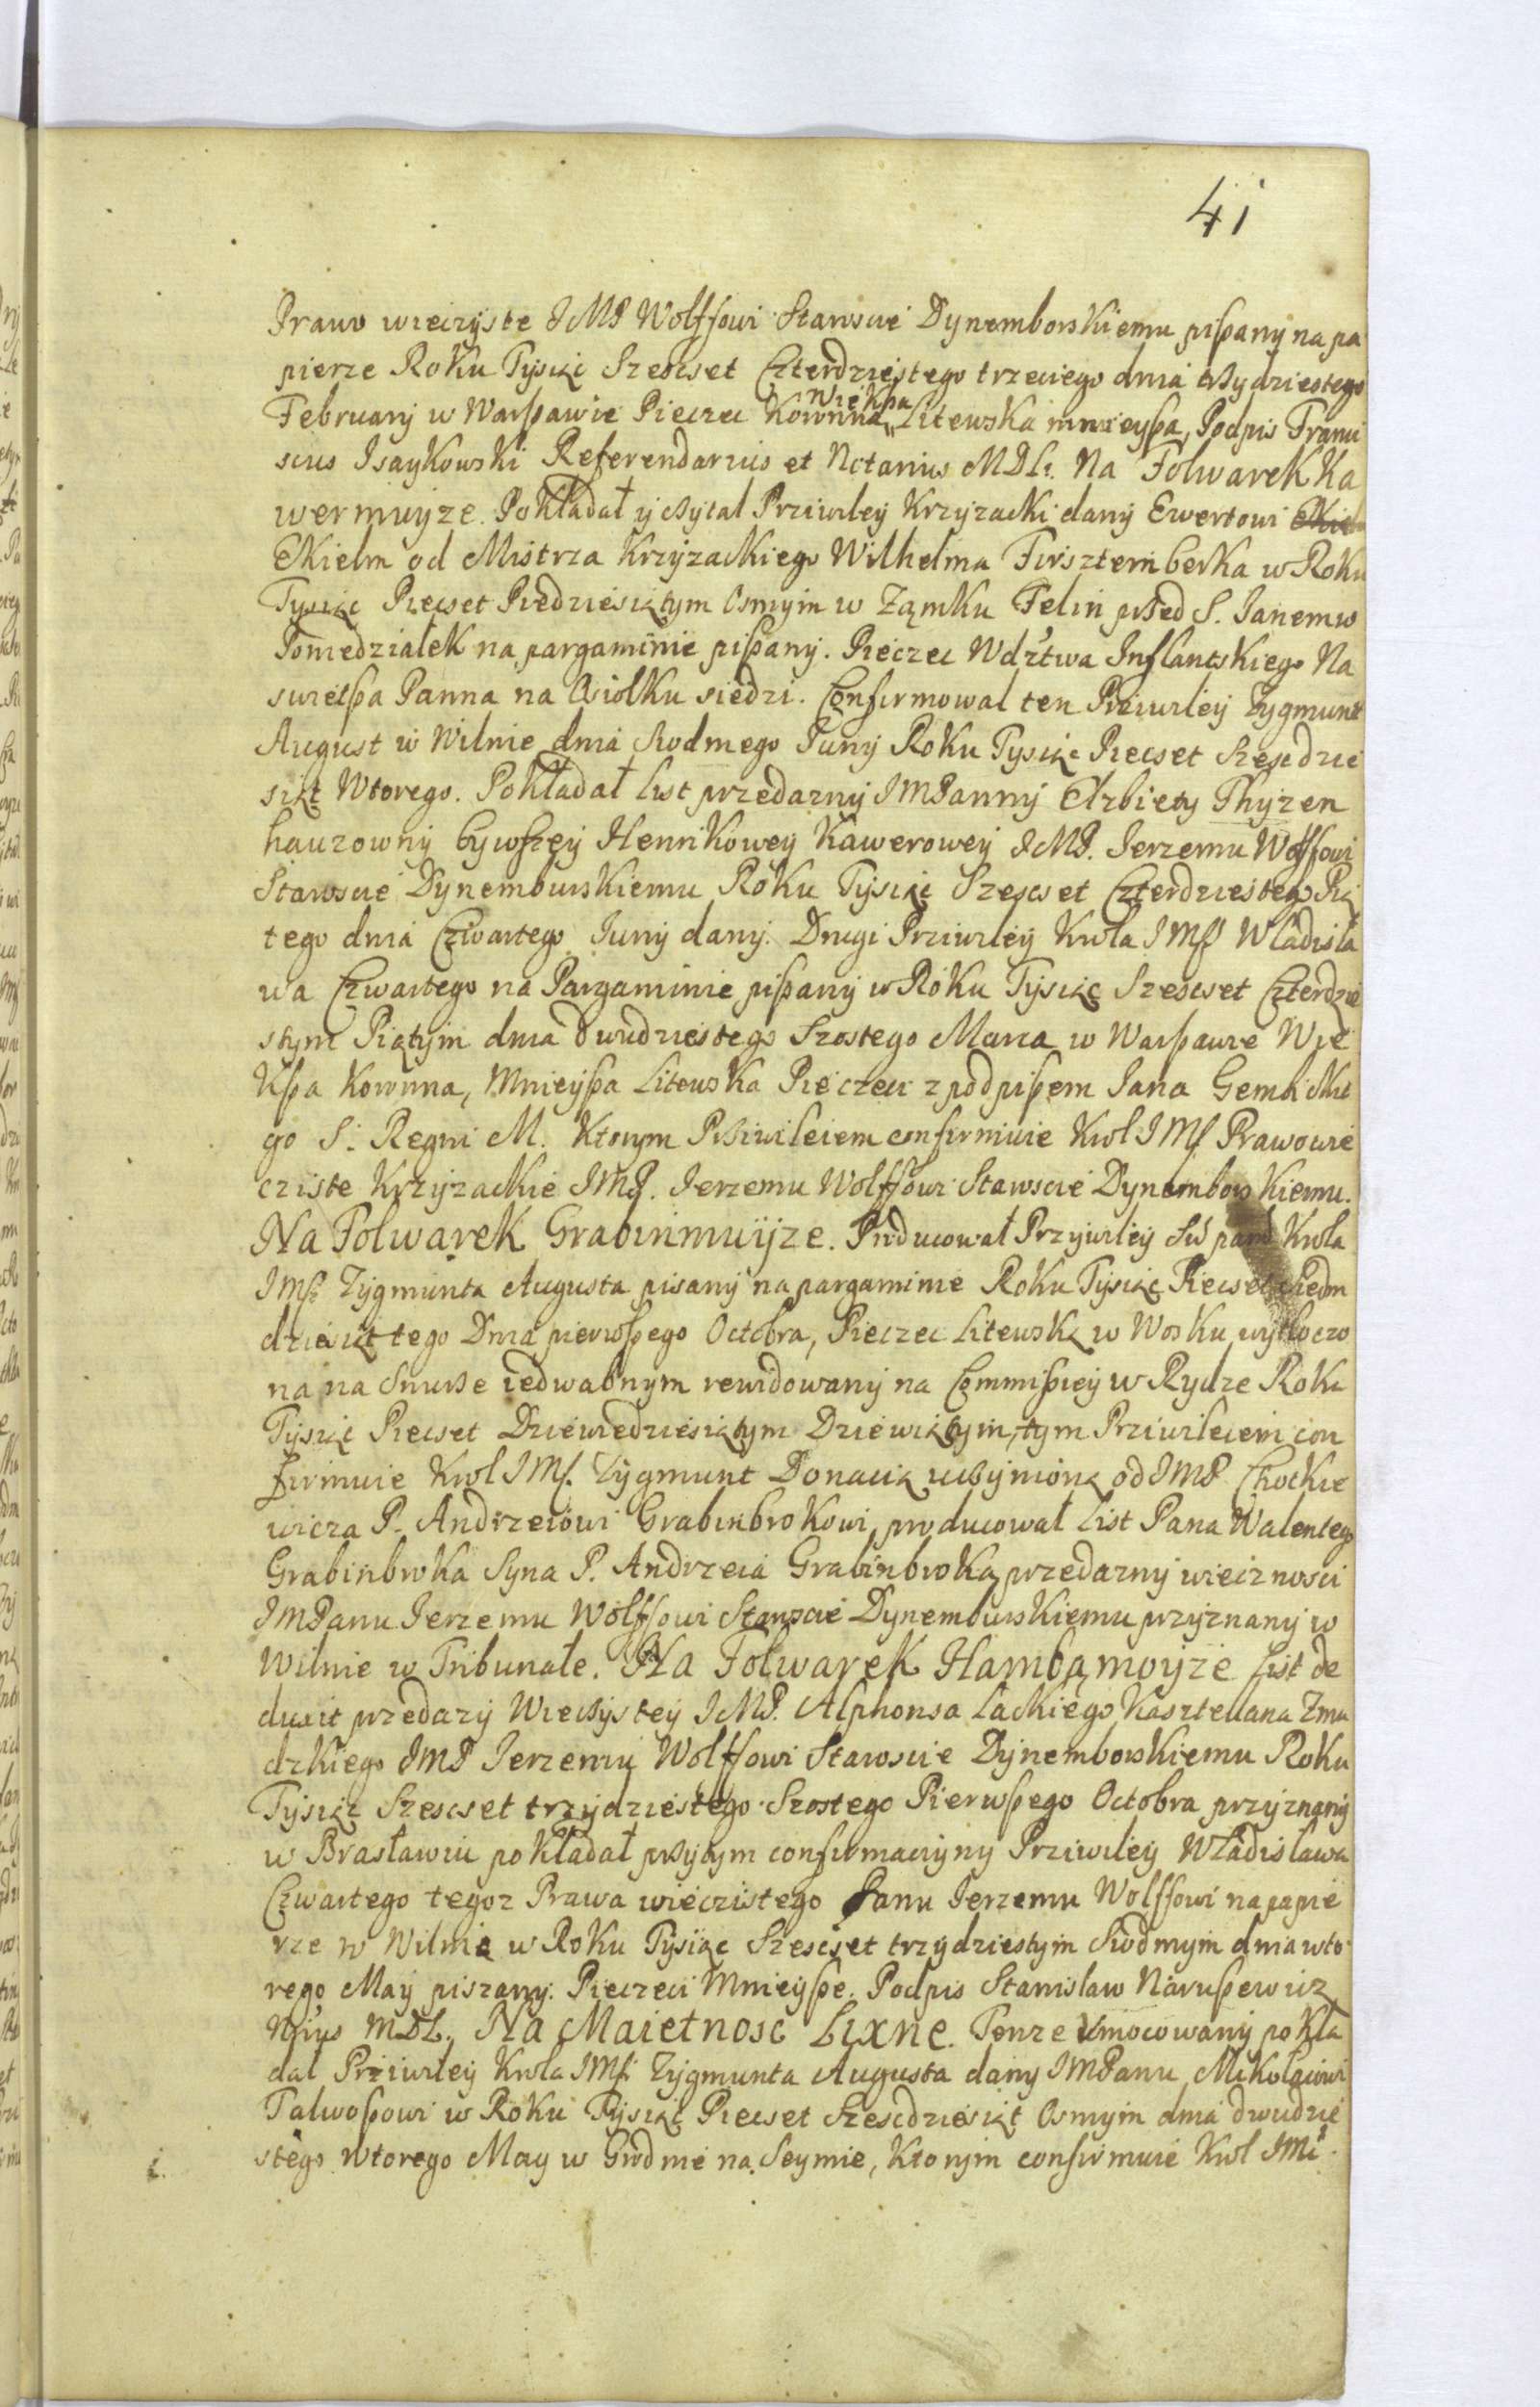 41
Prawo wieczyste JMP Wolffowi Staroscie Dynemborskiemu pisany na pa
pierze Roku Tysiąc Szescset Czterdziestego trzeciego dnia trzydziestego
February w Warszawie Pieczec Koronna większa Litewska mnieysza, Podpis Franci
scus Isaykowski Referendarius et Notarius MDLi. Na Folwarek Ka
wermuyze. Pokładał y czytal Prziwiley Krzyzacki dany Ewertowi Ekiel
Ekielm od Mistrza Krzyzackiego Wilhelma Firsztemberka w Roku
Tysiąc Piecset Piedziesiątym Osmym w Ząmku Felin przed S. Janem w
Poniedzialek na pargaminie pisany. Pieczec Wdztwa Inflantskiego Na
swietsza Panna na Osiolku siedzi. Confirmowal ten Priwiley Zygmunt
August w Wilnie dnia Siodmego Juny Roku Tysiąc Piecset Szescdzie
siąt Wtorego. Pokładał List przedazny JMPanny Elzbiety Thyzen
hauzowny bywszey Henrikowey Kawerowey JMP. Jerzemu Wolffowi
Staroscie Dynemburskiemu Roku Tysiąc Szescset Czterdziestego Pią
tego dnia Czwartego Juny dany. Drugi Priwiley Krola JMsci Wladisła
wa Czwartego na Pargaminie pisany w Roku Tysiąc Szescset Czterdzie
stym Piątym dnia dwudziestego Szostego Marca w Warszawie Wie
ksza Koronna, Mnieysza Litewska Pieczeci z podpisem Jana Gembickie
go S. Regni M. Ktorym Przivileiem confirmuie Krol JMs Prawo wie
cziste Krzyzackie JMP. Jerzemu Wolffowi Staroscie Dynemborskiemu.
Na Folwarek Grabinmuyze. Producował Przywiley Krola
JMsci Zygmunta Augusta pisany na pargaminie Roku Tysiąc Piecset Siedm
dziesiątego Dnia pierwszego Octobra, Pieczec Litewską w Wosku wytłoczo
na na Snurze iedwabnym rewidowany na Commissiey w Rydze Roku
Tysiąc Piecset Dziewiedziesiątym Dziewiątym, tym Priwileiem con
firmuie Krol JMs. Zygmunt Donacią uczynioną od JMP Chotkie
wicza P. Andrzeiowi Grabinbrokowi, producował List Pana Walentego
Grabinbroka Syna P. Andrzeia Grabinbroka, przedazny wiecznosci
JMPanu Jerzemu Wolffowi Staroscie Dynemburskiemu przyznany w
Wilnie w Tribunale. Na Folwarek Hambamoyze List de
duxit przedazy Wieczystey JMP. Alphonsa Lackiego Kasztellana Zmu
dzkiego JMP Jerzemu Wolffowi Staroscie Dynemborskiemu Roku
Tysiąc Szescset trzydziestego Szostego Pierwszego Octobra przyznany
w Brasławiu pokładał przytym confirmacyiny Priwiley Władisława
Czwartego tegoz Prawa wieczistego Panu Jerzemu Wolffowi na papie
rze w Wilnie w Roku Tysiąc Szescset trzydziestym Siodmym dnia wto
rego May piszany. Pieczeci Mnieysze. Podpis Stanislaw Naruszewicz
Nrius MDL. Na Maietnosc Lixne. Tenze Umocowany pokła
dal Przywiley Krola JMsci Zygmunta Augusta dany JMPanu Mikolaiowi
Talwoszowi w Roku Tysiąc Piecset Szescdziesiąt Osmym dnia dwudzie
stego wtorego May w Grodnie na Seymie, Ktorym confirmuie Krol JMs